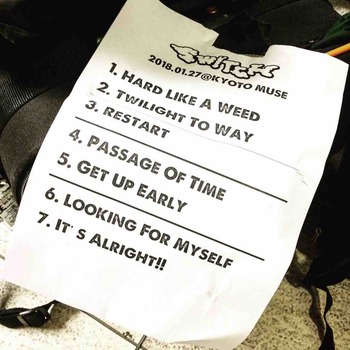 SWITCH
2018.01.27@KYOTO MUSE
1. HARD LIKE A WEED
2. TWILIGHT TO WAY
3. RESTART
4. PASSAGE OF TIME
5. GET UP EARLY
6. LOOKING FOR MYSELF
7. IT'S ALRIGHT!!